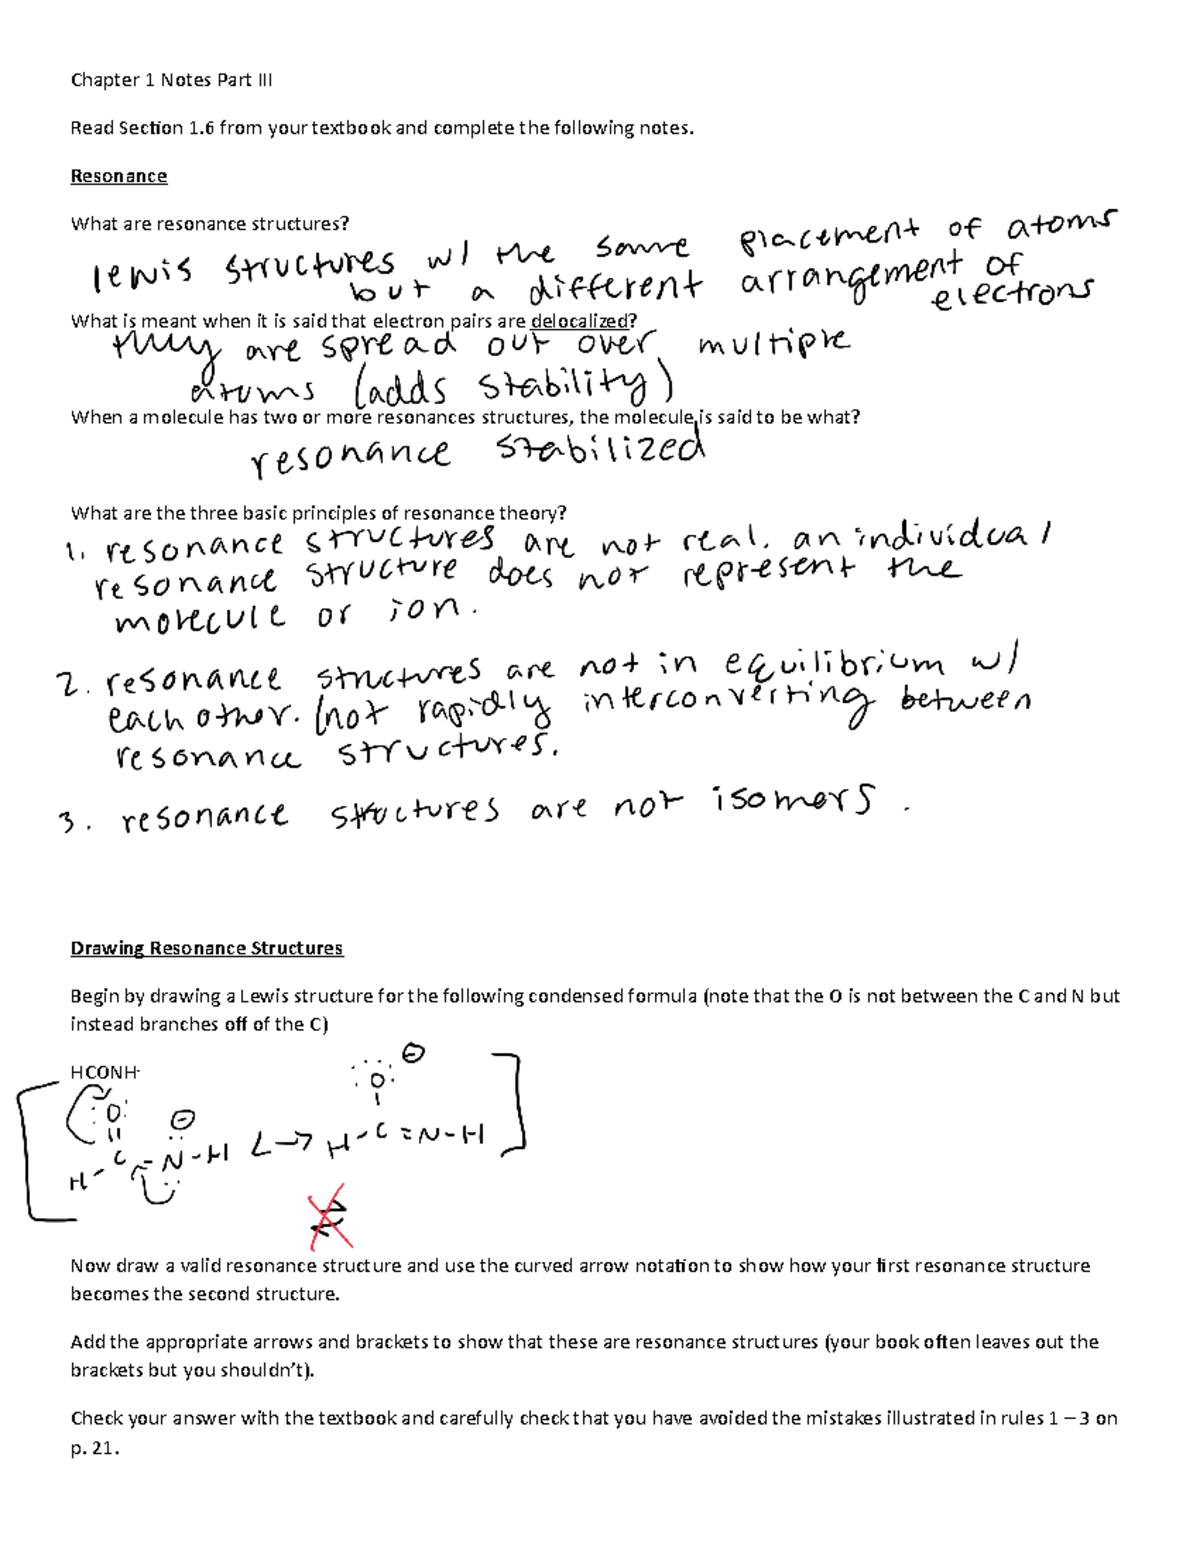 Chapter 1 Notes Part III
Read Section 1.6 from your textbook and complete the following notes.
Resonance
What are resonance structures?
lewis structures w/ the same placement of atoms
but a different arrangement of
electrons
What is meant when it is said that electron pairs are delocalized?
they are spread out over multiple
atoms (adds stability)
When a molecule has two or more resonances structures, the molecule is said to be what?
resonance stabilized
What are the three basic principles of resonance theory?
1. resonance structures are not real. an individual
resonance structure does not represent the
molecule or ion.
2. resonance structures are not in equilibrium w/
each other. (not rapidly interconverting between
resonance structures.
3. resonance structures are not isomers.
Drawing Resonance Structures
Begin by drawing a Lewis structure for the following condensed formula (note that the O is not between the C and N but
instead branches off of the C)
HCONH-
O O
H-C-N-H <-> H-C=N-H
Now draw a valid resonance structure and use the curved arrow notation to show how your first resonance structure
becomes the second structure.
Add the appropriate arrows and brackets to show that these are resonance structures (your book often leaves out the
brackets but you shouldn't).
Check your answer with the textbook and carefully check that you have avoided the mistakes illustrated in rules 1 – 3 on
p. 21.